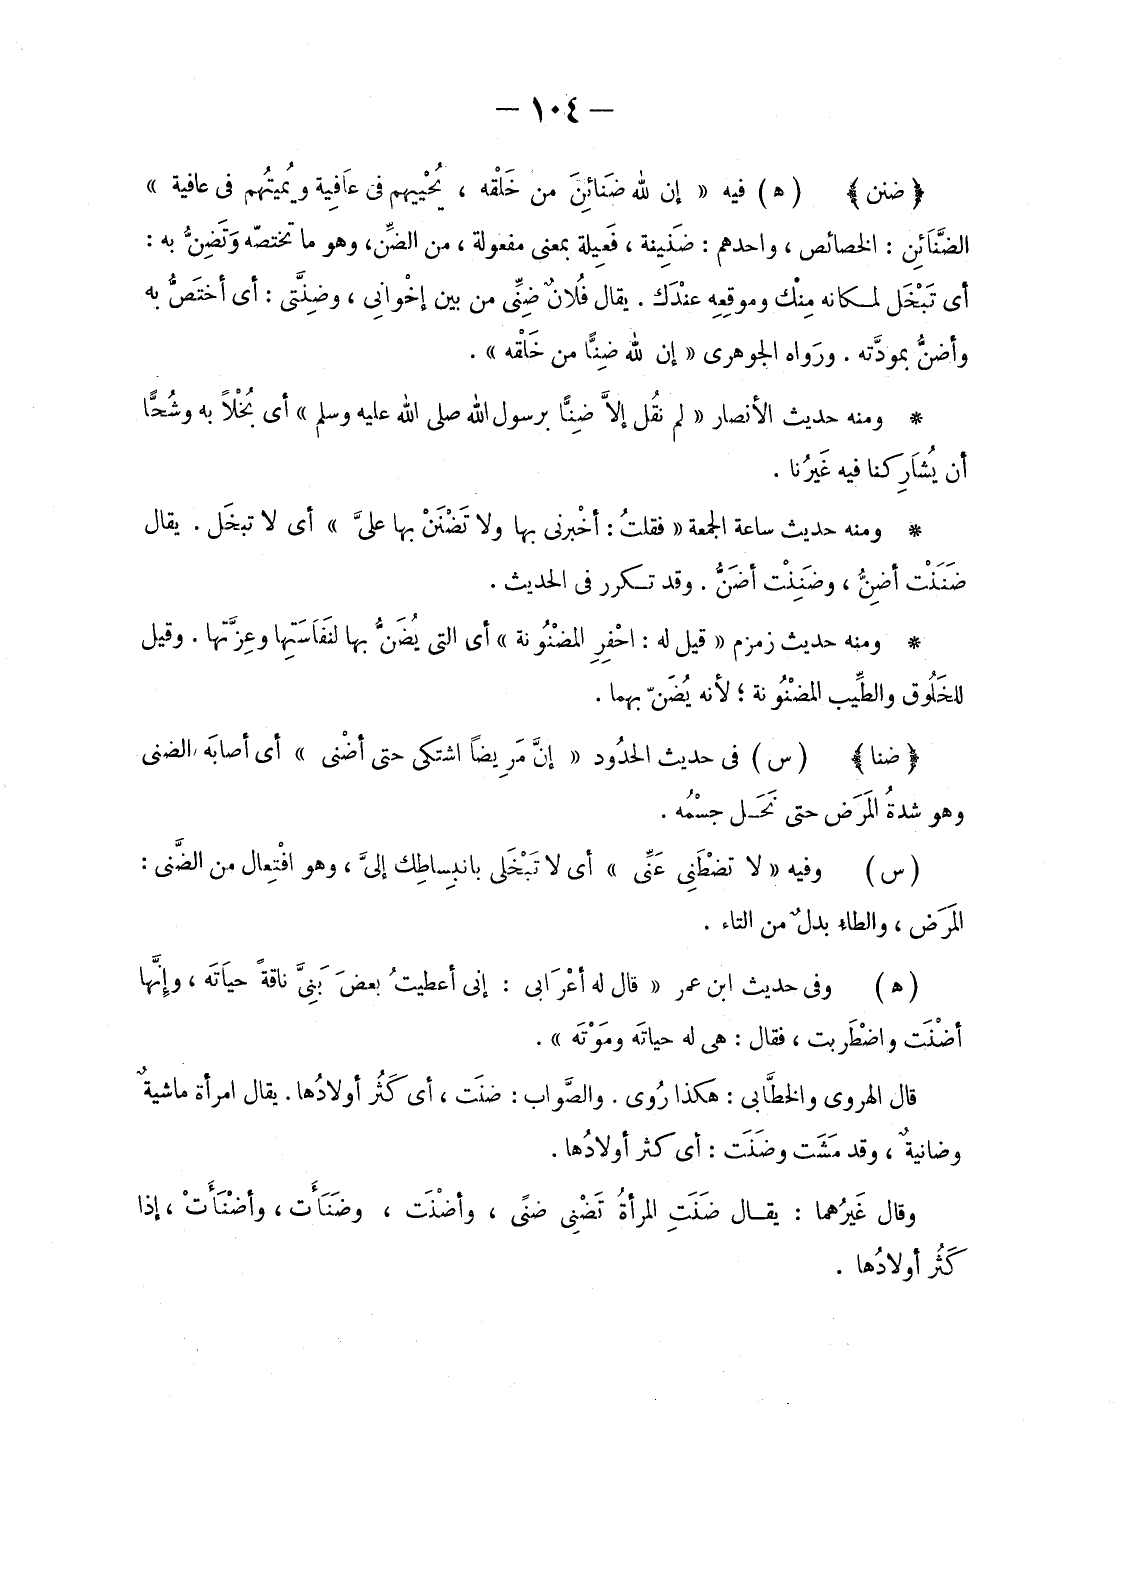 — ١٠٤ —
﴿ ضنن ﴾ ( ه ) فيه « إن لله ضَنائِنَ من خَلْقه ، يُحْيِيهم فى عَافِية ويُميتُهم فى عافية »
الضَّنَائِن : الخصائص ، واحدهم : ضَنِينة ، فَعِيلة بمعنى مفعولة ، من الضنِّ، وهو ما تختصّه وَتَضِنُّ به :
أى تَبْخَل لمكانه مِنْك وموقِعِه عنْدَك . يقال فُلانٌ ضِنِّى من بين إخْوانِى ، وضِنَّتى : أى أختَصُّ به
وأضنُّ بمودَّته . ورَواه الجوهرى « إن لله ضِنًّا من خَلْقه » .
* ومنه حديث الأنصار « لم نقُل إلاَّ ضِنًّا برسول الله صلى الله عليه وسلم » أى بُخْلاً به وشُحًّا
أن يُشَارِكنا فيه غَيرُنا .
* ومنه حديث ساعة الجمعة « فقلتُ : أخْبرنى بها ولا تَضْنَنْ بها علىَّ » أى لا تبخَل . يقال
ضَنَنْت أضِنُّ ، وضَنِنْت أضَنُّ . وقد تكرر فى الحديث .
* ومنه حديث زمزم « قيل له : احْفِرِ المضْنُونة » أى التى يُضَنُّ بها لنَفَاسَتِها وعِزَّتها . وقيل
للخَلُوق والطِّيب المضْنُونة ؛ لأنه يُضَنّ بهما .
﴿ ضنا ﴾ ( س ) فى حديث الحدُود « إنَّ مَرِيضاً اشتكى حتى أضْنى » أى أصابَه الضنى
وهو شدةُ المَرَض حتى نَحَل جسْمُه .
( س ) وفيه « لا تضْطَنِى عَنِّى » أى لا تَبْخَلى بانبِساطِك إلىَّ ، وهو افْتِعال من الضَّنى :
المَرَض ، والطاء بدلٌ من التاء .
( ه ) وفى حديث ابن عمر « قال له أعْرَابى : إنى أعطيتُ بعضَ بَنِىَّ ناقةً حيَاتَه ، وإنَّها
أضْنَت واضْطَربت ، فقال : هى له حياتَه ومَوْتَه » .
قال الهروى والخطَّابى : هكذا رُوى . والصَّواب : ضنَت ، أى كَثُر أولادُها . يقال امرأة ماشيةٌ
وضانيةٌ ، وقد مَشَت وضَنَت : أى كثر أولادُها .
وقال غَيرُهما : يقال ضَنَتِ المرأةُ تَضْنِى ضنًى ، وأضْنَت ، وضَنَأَت ، وأضْنَأَتْ ، إذا
كَثُر أولادُها .